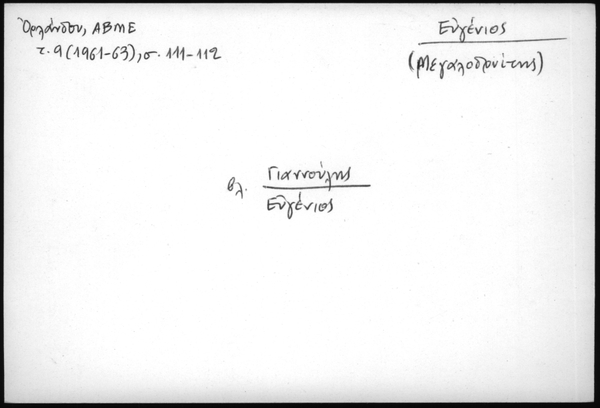 Ὀρλάνδου, ΑΒΜΕ
τ. 9 (1961-63), σ. 111-112
Εὐγένιος
(Μεγαλοδρνίτης)
βλ. Γιαννούλης
Εὐγένιος